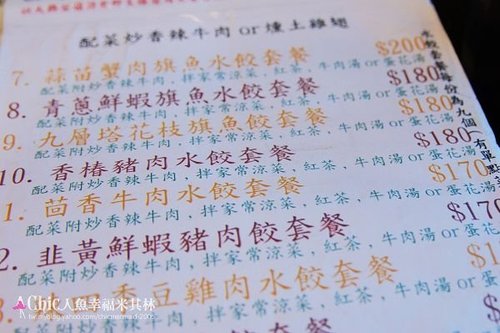 配菜炒香辣牛肉or燻土雞翅
7. 蒜苗蟹肉旗魚水餃套餐 $200
配菜附炒香辣牛肉，拌家常涼菜，紅茶，牛肉湯 or 蛋花湯
8. 青蔥鮮蝦旗魚水餃套餐 $180
配菜附炒香辣牛肉，拌家常涼菜，紅茶，牛肉湯 or 蛋花湯
9. 九層塔花枝旗魚餃套餐 $180
配菜附炒香辣牛肉，拌家常涼菜，紅茶，牛肉湯 or 蛋花湯
10. 香椿豬肉水餃套餐 $180
配菜附炒香辣牛肉，拌家常涼菜，紅茶，牛肉湯 or 蛋花湯
1. 茴香牛肉水餃套餐 $170
配菜附炒香辣牛肉，拌家常涼菜，紅茶，牛肉湯 or 蛋花湯
2. 韭黃鮮蝦豬肉餃套餐 $170
配菜附炒香辣牛肉，拌家常涼菜，紅茶，牛肉湯 or 蛋花
豆雞肉水餃套餐
香辣牛肉，拌家常涼菜，紅茶，牛肉湯 or
Chic人魚幸福米其林